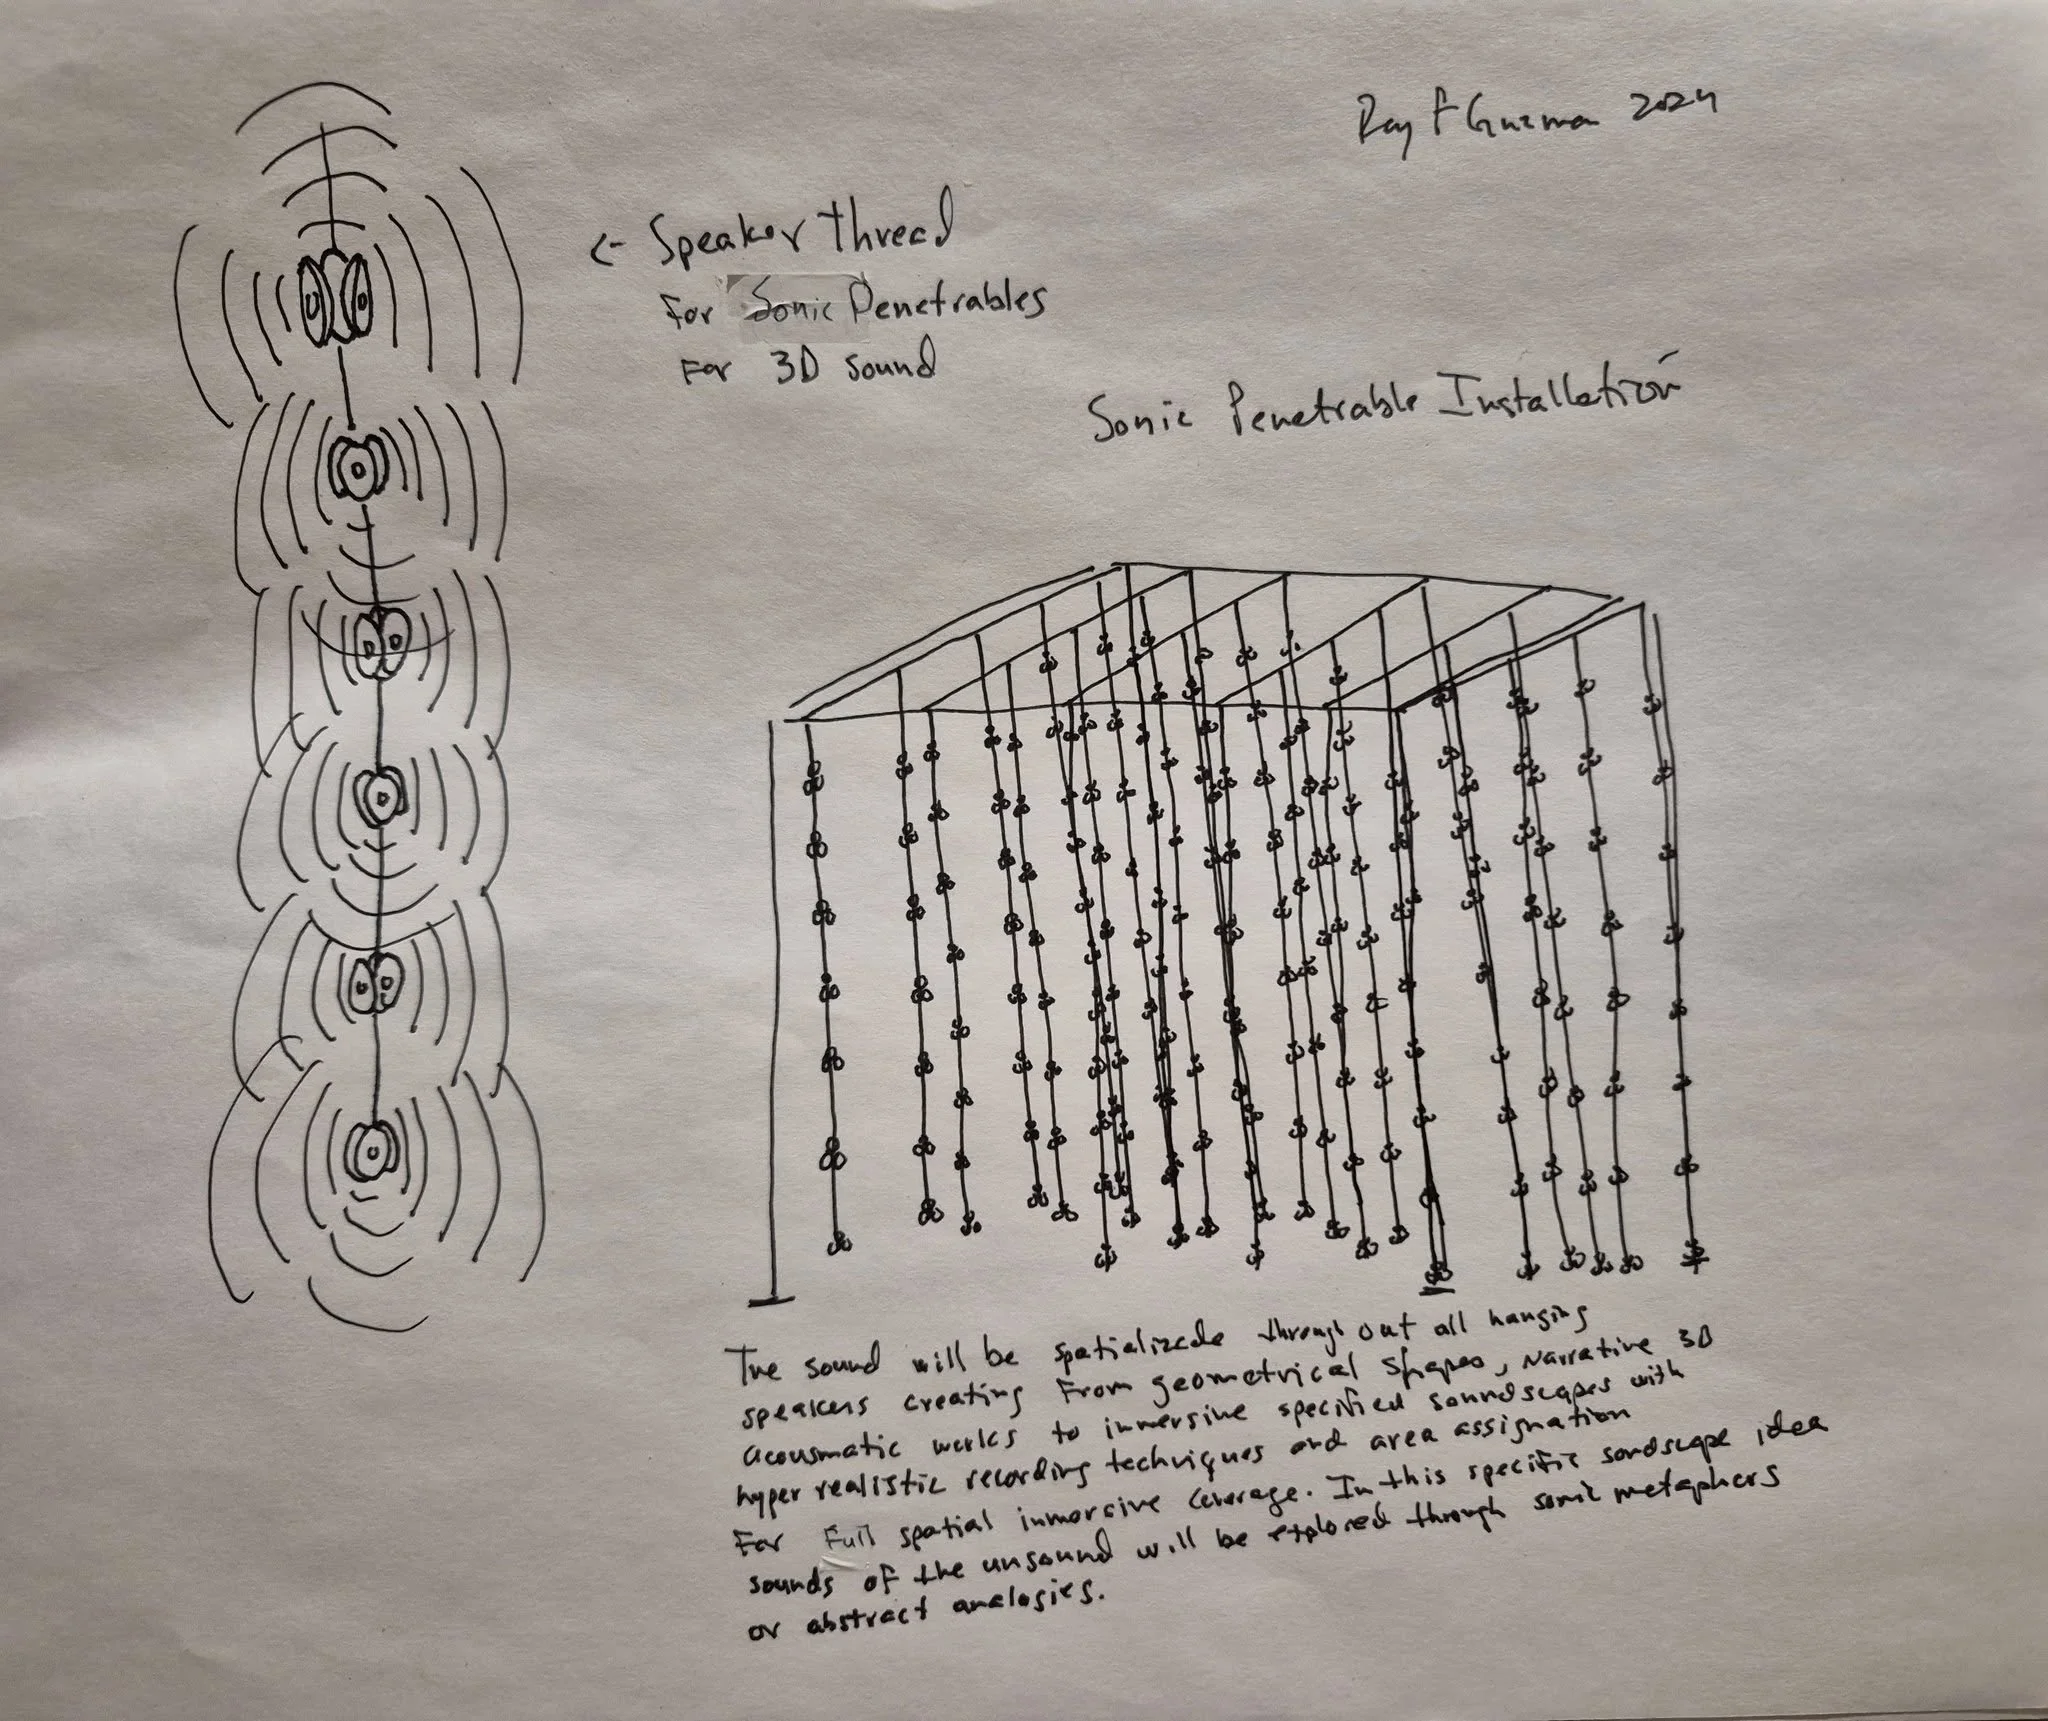 Ray F Guzman 2024
← Speaker thread
For Sonic Penetrables
For 3D sound
Sonic Penetrable Installation
The sound will be spatializade through out all hanging
speakers creating From geometrical shapes, Narrative 3D
acousmatic works to inmersive specified soundscapes with
hyper realistic recording techniques and area assignation
For Full spatial inmersive coverage. In this specific sondscape idea
sounds of the unsound will be explored through sonic metaphors
or abstract analogies.